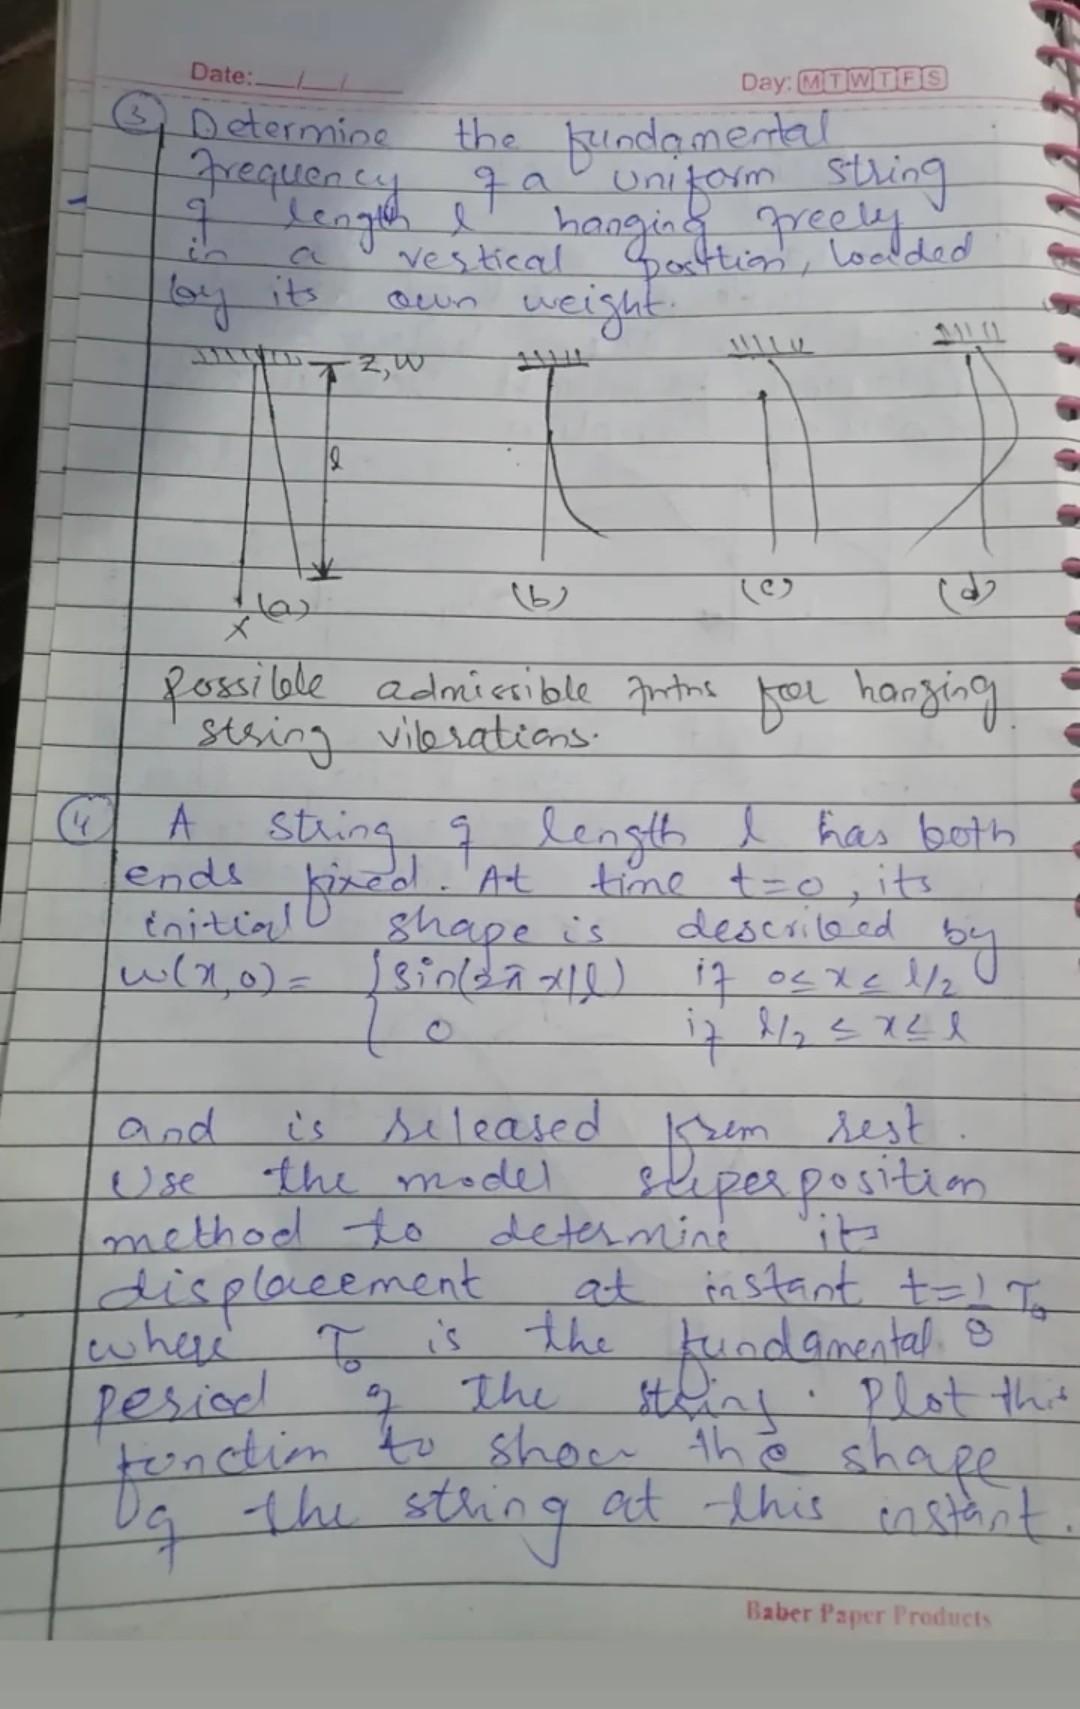 Date: __/__/__ Day: M T W T F S
③ Determine the fundamental
frequency of a uniform string
of length l hanging freely
in a vertical position, loaded
by its own weight.
z, w
l
x (a) (b) (c) (d)
Possible admissible fntns for hanging
string vibrations.
④ A string of length l has both
ends fixed. At time t=0, its
initial shape is described by
w(x,0) = { sin(2π x/l) if 0≤x≤ l/2
0 if l/2 ≤ x ≤ l
and is released from rest.
Use the model superposition
method to determine its
displacement at instant t=1/8 T₀
where T₀ is the fundamental
period of the string. Plot this
function to show the shape
of the string at this instant.
Baber Paper Products